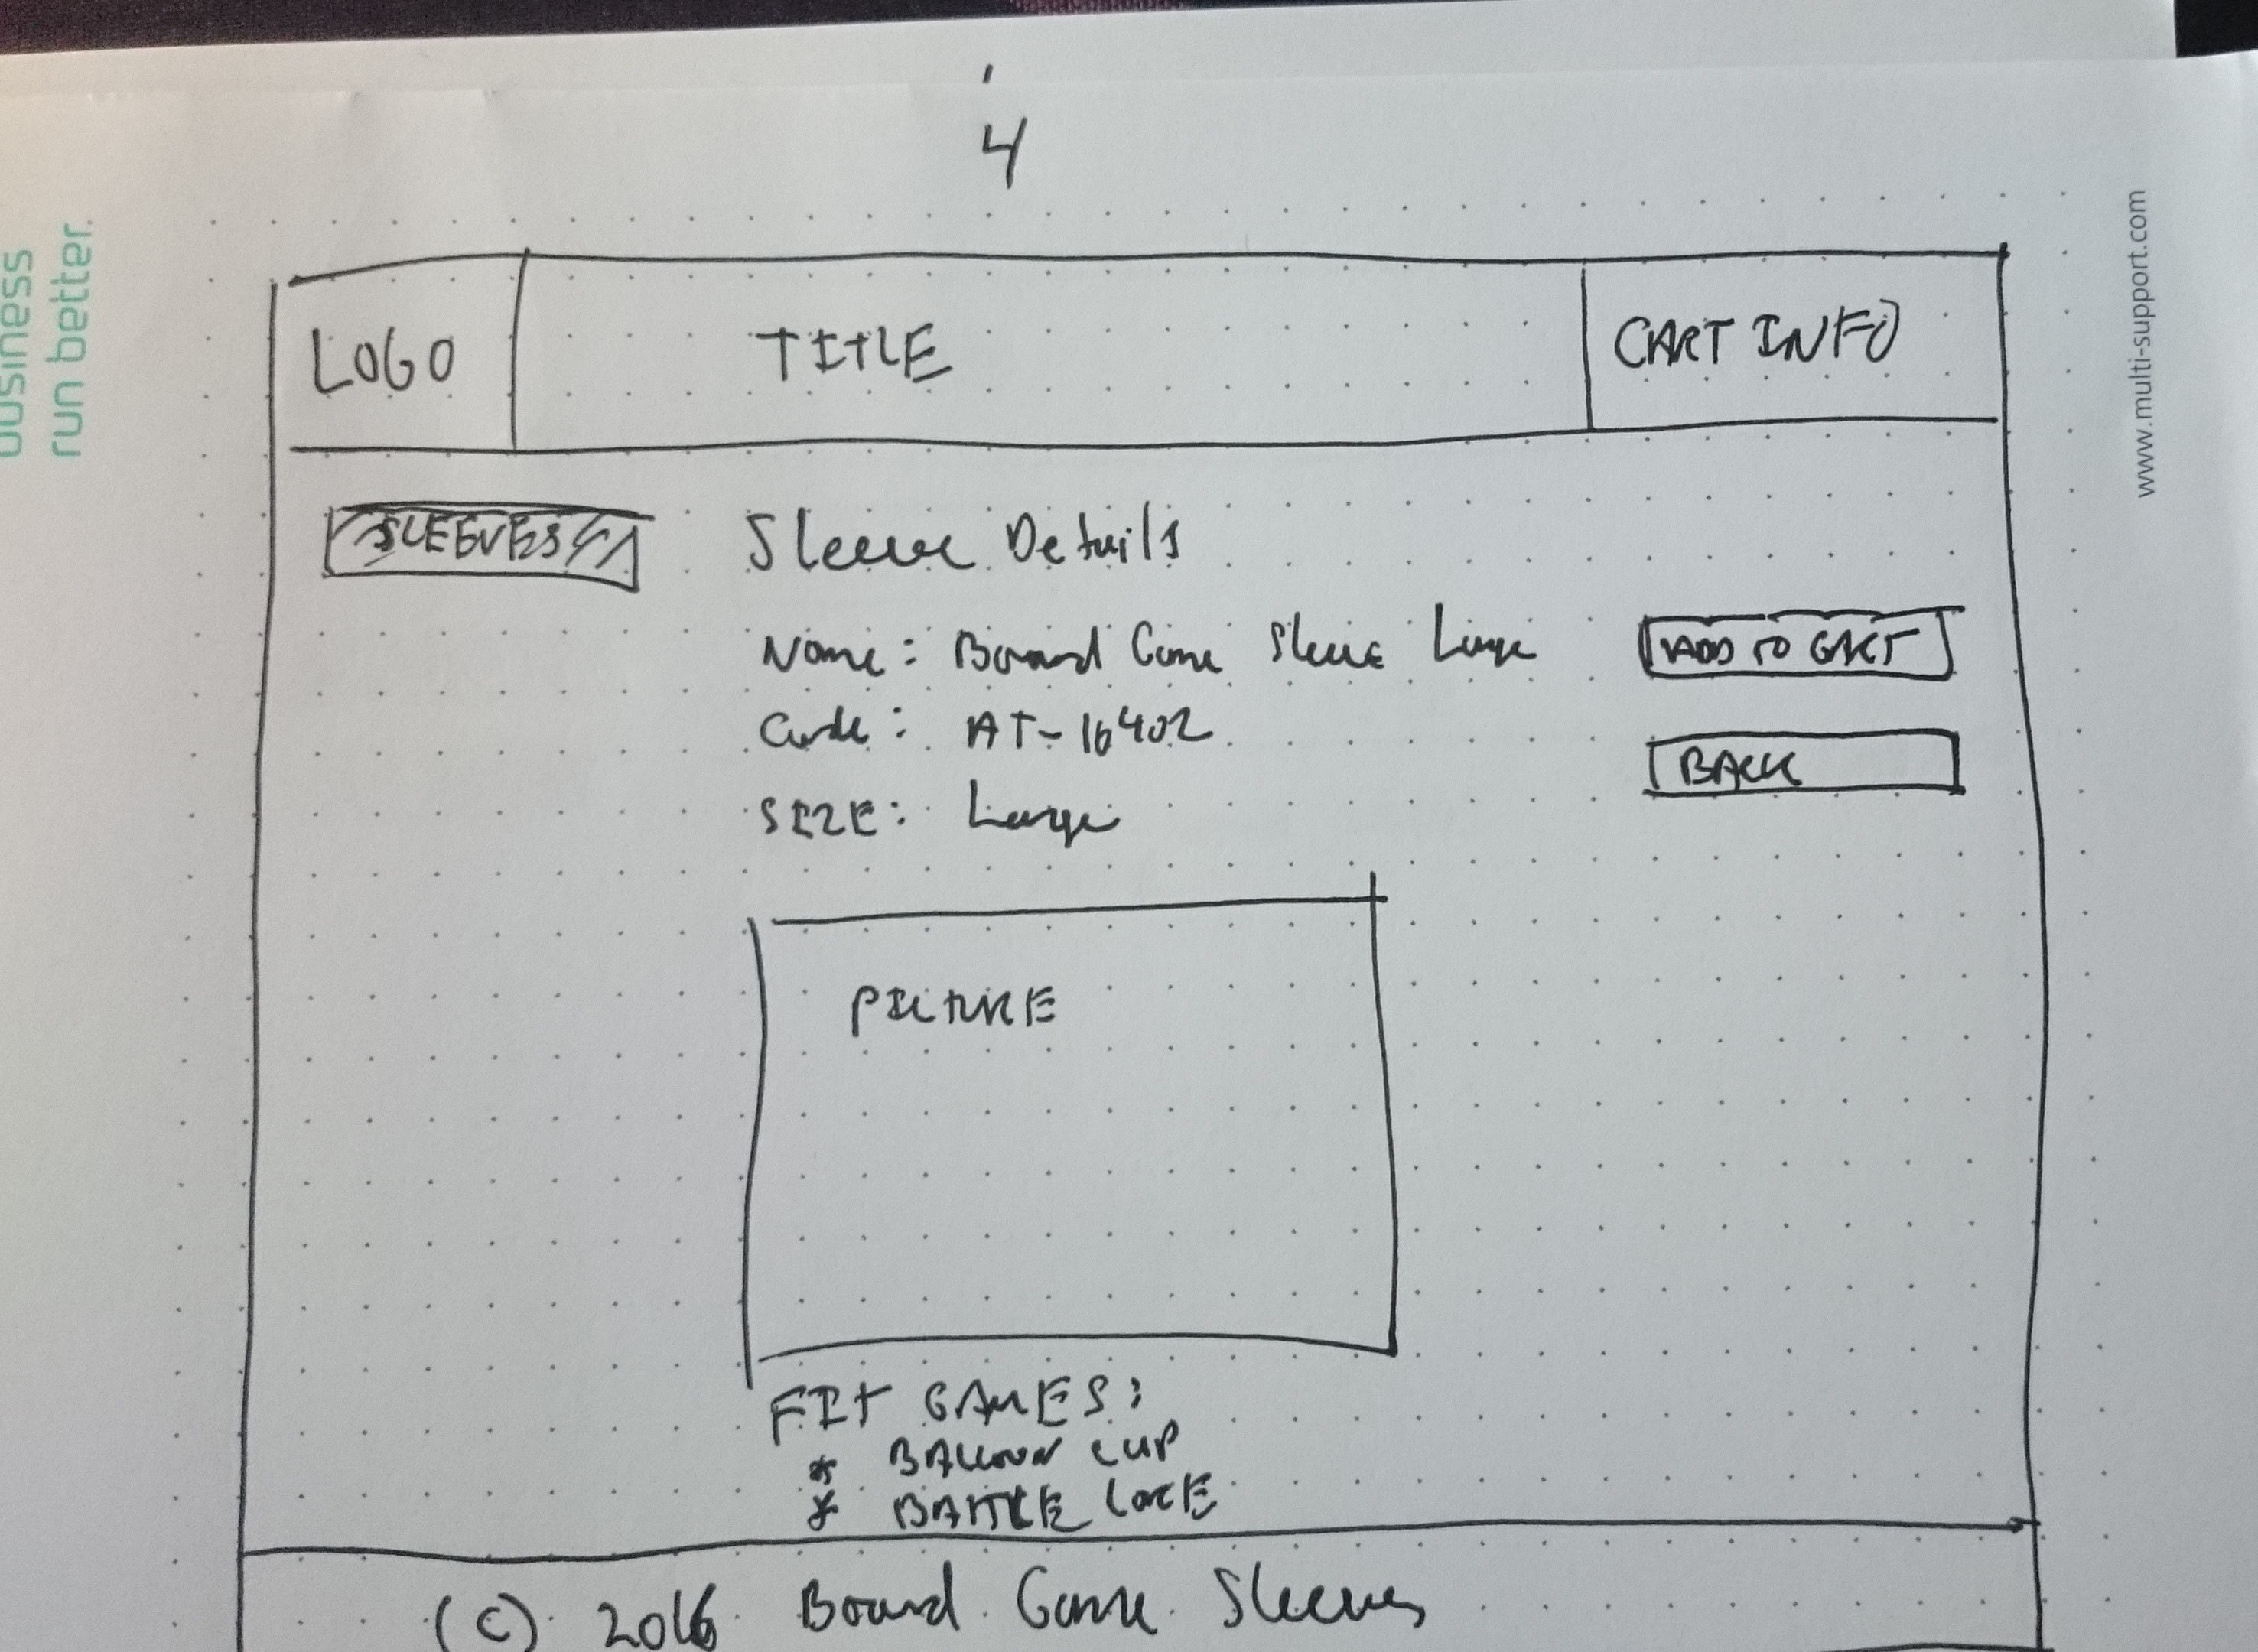 business
run better.
www.multi-support.com
4
LOGO
TITLE
CART INFO
SLEEVES
Sleeve Details
Name: Board Game Sleeve Large
ADD TO CART
Code: AT-16402
BACK
SIZE: Large
PICTURE
FIT GAMES:
* BALLOON CUP
* BATTLE LORE
(C) 2016 Board Game Sleeves